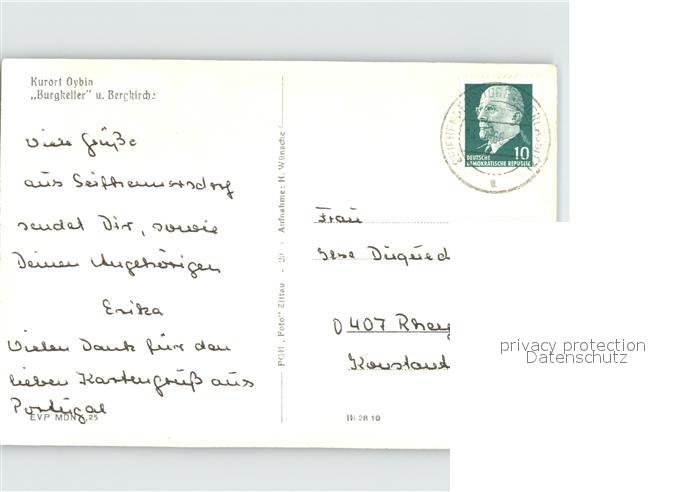 Kurort Oybin
„Burgkeller" u. Bergkirche
Viele Grüße
aus Seifhennersdorf
sendet Dir, sowie
Deinen Angehörigen
Erika
Vielen Dank für den
lieben Kartengruß aus
Portugal
EVP MDN -,25
PGH „Foto" Zittau - 20 - Aufnahme: H. Wünsche
DEUTSCHE
DEMOKRATISCHE REPUBLIK
10
Frau
D 407 Rhey
Konstant
Di 28 10
privacy protection
Datenschutz